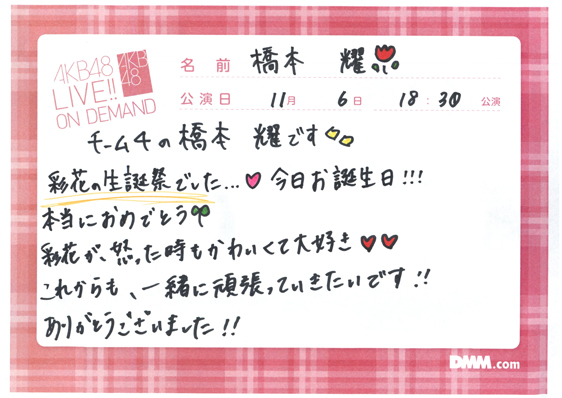 AKB48
LIVE!!
ON DEMAND
AKB
48
名 前 橋本 耀
公演日 11月 6日 18:30 公演
チーム4の橋本 耀です
彩花の生誕祭でした...今日お誕生日!!!
本当におめでとう
彩花が、怒った時もかわいくて大好き
これからも、一緒に頑張っていきたいです!!
ありがとうございました!!
DMM.com